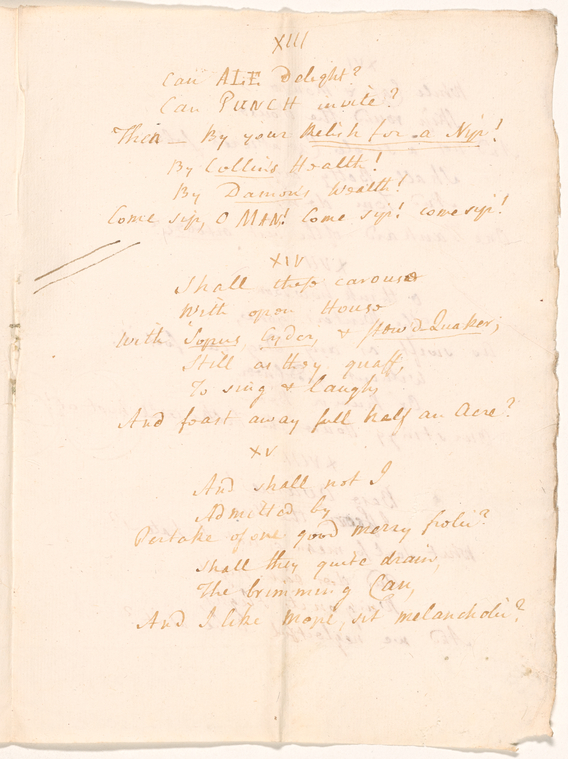 XIII
Can ALE Delight?
Can PUNCH invite?
Then — By your Relish for a Nip!
By Collin's Health!
By Damon's Wealth!
Come sip, O MAN! Come sip! come sip!
XIV
Shall these carouse
With open House
With Sopus, Cyder, & stow'd Quaker,
Still as they quaff,
To sing & laugh,
And feast away full half an Acre?
XV
And shall not I
Admitted by
Partake of one good merry frolic?
Shall they quite drain,
The brimming Can,
And I like Mope, sit melancholic?